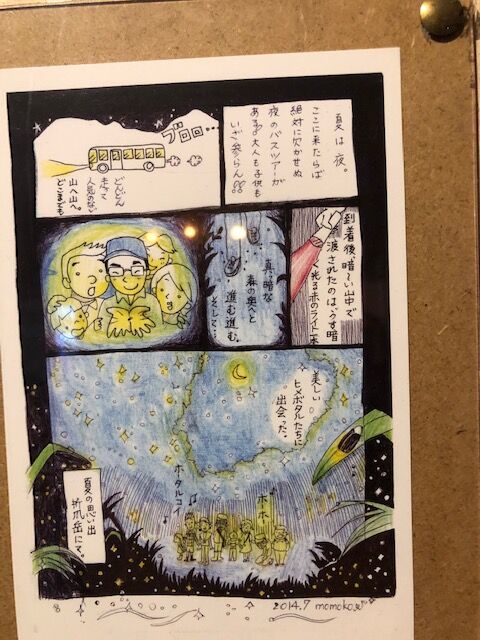 夏は夜。
ここに来たらば
絶対に欠かせぬ
夜のバスツアーが
ある♪大人も子供も
いざ参らん!!
ブロロ…
どんどん
走って
人気のない
山へ山へ。
どこまでも
到着後、暗〜い山中で
渡されたのは、うす暗
く光る赤のライト一本
真っ暗な
森の奥へと
進む進む。
そして…
美しい
ヒメボタルたちに
出会った。
ホタルコイ
ホホー
夏の思い出
折爪岳にて。
8
2014.7 momoko.se